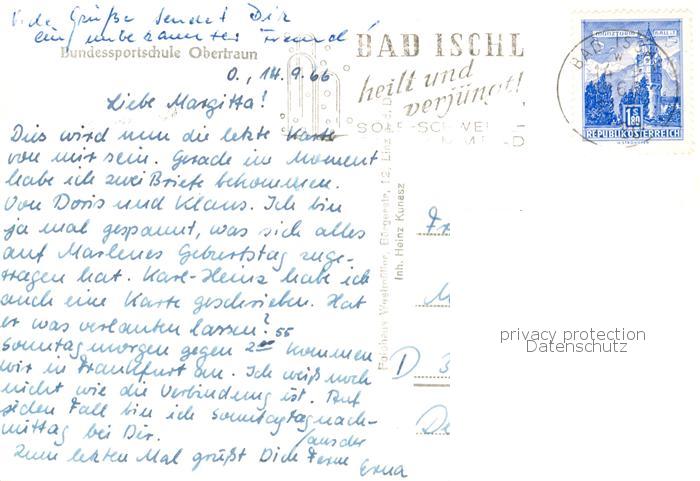 Viele Grüße sendet Dir
ein unbekannter Freund!
Bundessportschule Obertraun
BAD ISCHL
heilt und
verjüngt!
BAD ISCHL
MÜNZTURM HALL i. T.
S 1.80
REPUBLIK ÖSTERREICH
O., 14.9.66
Liebe Margitta!
Dies wird nun die letzte Karte
von mir sein. Gerade im Moment
habe ich zwei Briefe bekommen.
Von Doris und Klaus. Ich bin
ja mal gespannt, was sich alles
auf Marlenes Geburtstag zuge-
tragen hat. Karl-Heinz habe ich
auch eine Karte geschrieben. Hat
er was verlauten lassen?
Sonntagmorgen gegen 2⁵⁵ kommen
wir in Frankfurt an. Ich weiß noch
nicht wie die Verbindung ist. Auf
jeden Fall bin ich Sonntagnach-
mittag bei Dir.
Zum letzten Mal grüßt Dich /aus der Ferne
Erna
Inh. Heinz Kunesz
D 3
privacy protection
Datenschutz